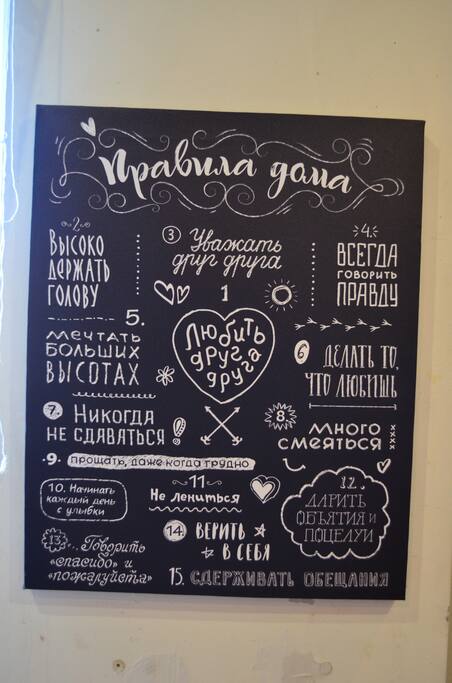 Правила дома
2.
Высоко
держать
голову
3 Уважать
друг друга
4.
Всегда
говорить
правду
1
Любить
друг
друга
5.
мечтать
больших
высотах
6 делать то,
что любишь
7. Никогда
не сдаваться!
8.
много
смеяться
xxxx
9. прощать, даже когда трудно
10. Начинать
каждый день
с улыбки
11
Не лениться
12.
Дарить
объятия и
поцелуи
13. Говорить
«спасибо» и
«пожалуйста»
14 верить
в себя
15. сдерживать обещания